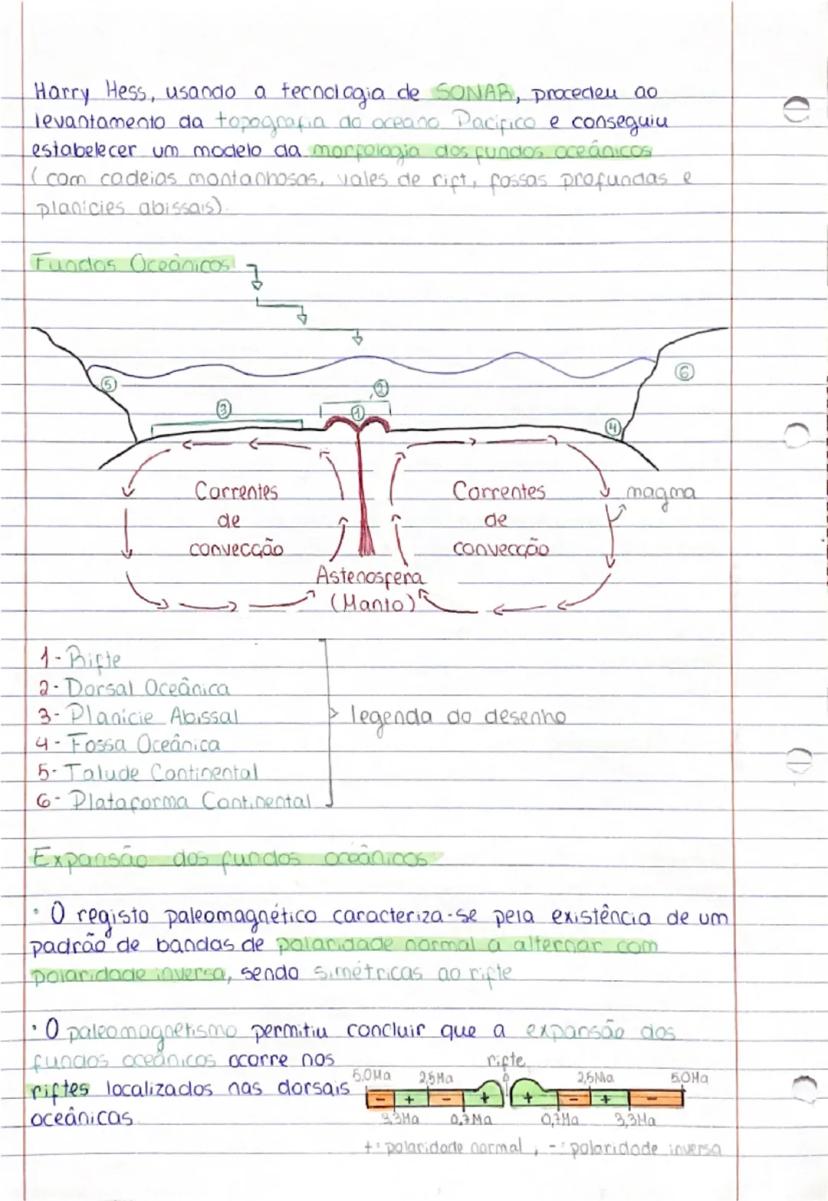 Harry Hess, usando a tecnologia de SONAR, procedeu ao
levantamento da topografia do oceano Pacífico e conseguiu
estabelecer um modelo da morfologia dos fundos oceânicos
(com cadeias montanhosas, vales de rift, fossas profundas e
planícies abissais).
Fundos Oceânicos
5
6
2
3
1
4
Correntes
de
convecção
Correntes
de
convecção
magma
Astenosfera
(Manto)
1- Rifte
2- Dorsal Oceânica
3- Planície Abissal
4- Fossa Oceânica
5- Talude Continental
6- Plataforma Continental
legenda do desenho
Expansão dos fundos oceânicos
• O registo paleomagnético caracteriza-se pela existência de um
padrão de bandas de polaridade normal a alternar com
polaridade inversa, sendo simétricas ao rifte
• O paleomagnetismo permitiu concluir que a expansão dos
fundos oceânicos ocorre nos
riftes localizados nas dorsais
oceânicas
rifte
5,0Ma 2,5Ma 0 2,5Ma 5,0Ma
- + - + + - + -
3,3Ma 0,7Ma 0,7Ma 3,3Ma
+: polaridade normal , -: polaridade inversa